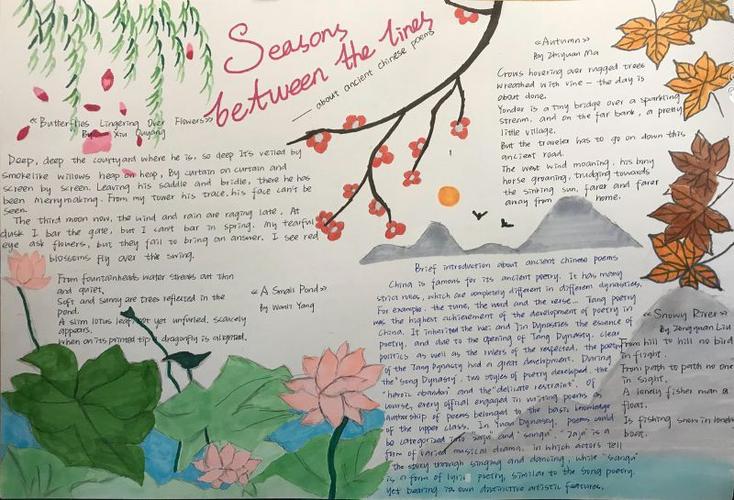 Seasons
between the lines
— about ancient chinese poems
《Butterflies Lingering Over Flowers》
By Xiu Ouyang
Deep, deep the courtyard where he is, so deep It's veiled by
smokelike willows heap on heap, By curtain on curtain and
screen by screen. Leaving his saddle and bridle, there he has
been merrymaking. From my tower his trace, his face can't be
seen.
The third moon now, the wind and rain are raging late, At
dusk I bar the gate, but I can't bar in spring. My tearful
eye ask flowers, but they fail to bring an answer. I see red
blossoms fly over the swing.
From fountainheads water streaks out thin
and quiet,
Soft and sunny are trees reflected in the
pond.
A slim lotus leaf, not yet unfurled, scarcely
appears,
when on its pointed tip a dragonfly is alighted.
《A Small Pond》
by Wanli Yang
《Autumn》
By Zhiyuan Ma
Crows hovering over rugged trees
wreathed with vine — the day is
about done.
Yonder is a tiny bridge over a sparkling
stream, and on the far bank, a pretty
little village.
But the traveler has to go on down this
ancient road.
The west wind moaning, his bony
horse groaning, trudging towards
the sinking sun, farer and farer
away from home.
Brief introduction about ancient chinese poems
China is famous for its ancient poetry. It has many
strict rules, which are completely different in different dynasties.
For example. the tune, the word and the verse... Tang poetry
was the highest achievement of the development of poetry in
China. It inherited the Wei and Jin Dynasties the essence of
poetry, and due to the opening of Tang Dynasty, clear
politics as well as the rulers of the respected, the poetry
of the Tang Dynasty had a great development. During
the Song Dynasty, two styles of poetry developed, the
"heroic abandon" and the "delicate restraint". Of
course, every official engaged in writing poems as
authorship of poems belonged to the basic knowledge
of the upper class. In Yuan Dynasty, poems could
be categorized into "zaju" and "sanqu". "Zaju" is a
form of varied musical drama, in which actors tell
the story through singing and dancing, while "sanqu"
is a form of lyric poetry, similar to the Song poetry,
yet bearing its own distinctive artistic features.
《Snowy River》
By Zongyuan Liu
From hill to hill no bird
in flight.
From path to path no one
in sight.
A lonely fisher man a
float.
Is fishing snow in lonely
boat.